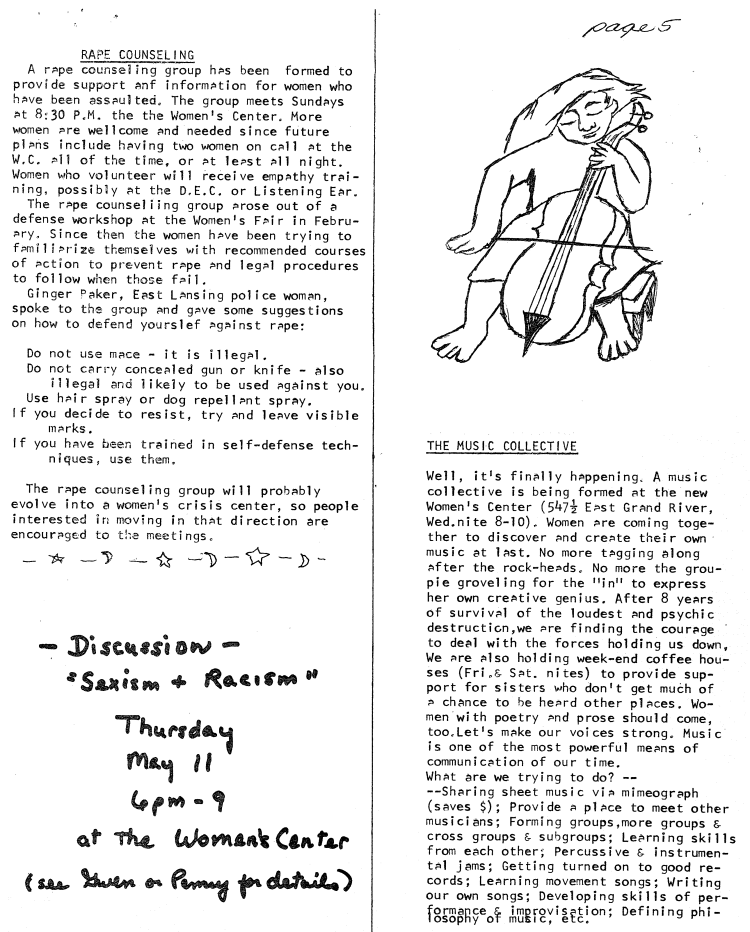 page 5
RAPE COUNSELING
A rape counseling group has been formed to
provide support anf information for women who
have been assaulted. The group meets Sundays
at 8:30 P.M. the the Women's Center. More
women are wellcome and needed since future
plans include having two women on call at the
W.C. all of the time, or at least all night.
Women who volunteer will receive empathy trai-
ning, possibly at the D.E.C. or Listening Ear.
The rape counseliing group arose out of a
defense workshop at the Women's Fair in Febru-
ary. Since then the women have been trying to
familiarize themselves with recommended courses
of action to prevent rape and legal procedures
to follow when those fail.
Ginger Paker, East Lansing police woman,
spoke to the group and gave some suggestions
on how to defend yourslef against rape:
Do not use mace - it is illegal.
Do not carry concealed gun or knife - also
illegal and likely to be used against you.
Use hair spray or dog repellant spray.
If you decide to resist, try and leave visible
marks.
If you have been trained in self-defense tech-
niques, use them.
The rape counseling group will probably
evolve into a women's crisis center, so people
interested in moving in that direction are
encouraged to the meetings.
- Discussion -
"Sexism + Racism"
Thursday
May 11
6pm - 9
at The Women's Center
(see Gwen or Penny for details)
THE MUSIC COLLECTIVE
Well, it's finally happening. A music
collective is being formed at the new
Women's Center (547½ East Grand River,
Wed.nite 8-10). Women are coming toge-
ther to discover and create their own
music at last. No more tagging along
after the rock-heads. No more the grou-
pie groveling for the "in" to express
her own creative genius. After 8 years
of survival of the loudest and psychic
destruction,we are finding the courage
to deal with the forces holding us down,
We are also holding week-end coffee hou-
ses (Fri.& Sat. nites) to provide sup-
port for sisters who don't get much of
a chance to be heard other places. Wo-
men with poetry and prose should come,
too.Let's make our voices strong. Music
is one of the most powerful means of
communication of our time.
What are we trying to do? --
--Sharing sheet music via mimeograph
(saves $); Provide a place to meet other
musicians; Forming groups,more groups &
cross groups & subgroups; Learning skills
from each other; Percussive & instrumen-
tal jams; Getting turned on to good re-
cords; Learning movement songs; Writing
our own songs; Developing skills of per-
formance & improvisation; Defining phi-
losophy of music, etc.